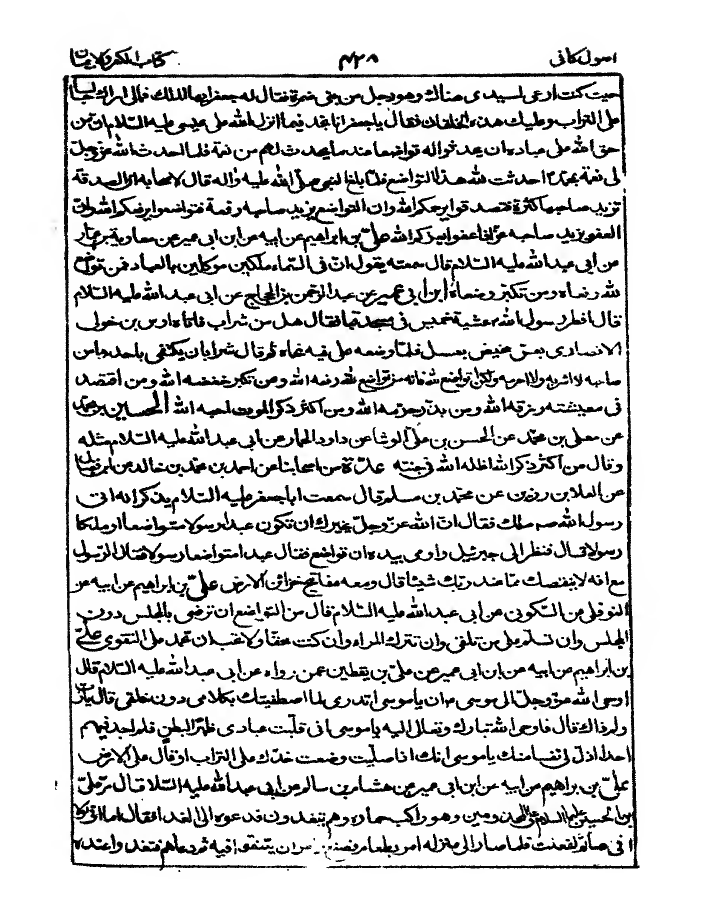 اصول كافى ٤٢٨ كتاب الكفر والايمان
حيث كنت ارعى لسيدى هناك وهو رجل من بنى ضمرة فقال له جعفر ايها الملك فمالى اراك جالسا
على التراب وعليك هذه الخلقان فقال يا جعفر انا نجد فيما انزل الله على عيسى عليه السلام ان من
حق الله على عباده ان يحدثوا له تواضعا عند ما يحدث لهم من نعمة فلما احدث الله عز وجل
لى نعمة بمحمد احدثت لله هذا التواضع فلما بلغ النبى صلى الله عليه واله قال لاصحابه ان الصدقة
تزيد صاحبها كثرة فتصدقوا يرحمكم الله وان التواضع يزيد صاحبه رفعة فتواضعوا يرفعكم الله وان
العفو يزيد صاحبه عزا فاعفوا يعزكم الله على بن ابراهيم عن ابيه عن ابن ابى عمير عن معاوية بن عمار
عن ابى عبد الله عليه السلام قال سمعته يقول ان فى السماء ملكين موكلين بالعباد فمن تواضع
لله رفعاه ومن تكبر وضعاه ابن ابى عمير عن عبد الرحمن بن الحجاج عن ابى عبد الله عليه السلام
قال افطر رسول الله عشية خميس فى مسجد قبا فقال هل من شراب فاتاه اوس بن خولى
الانصارى بعس مخيض بعسل فلما وضعه على فيه نحاه ثم قال شرابان يكتفى باحدهما من
صاحبه لا اشربه ولا احرمه ولكن اتواضع لله فانه من تواضع لله رفعه الله ومن تكبر خفضه الله ومن اقتصد
فى معيشته رزقه الله ومن بذر حرمه الله ومن اكثر ذكر الموت احبه الله الحسين بن محمد
عن معلى بن محمد عن الحسن بن على الوشا عن داود الحمار عن ابى عبد الله عليه السلام مثله
وقال من اكثر ذكر الله اظله الله فى جنته عدة من اصحابنا عن احمد بن محمد بن خالد عن ابن فضال
عن العلا بن رزين عن محمد بن مسلم قال سمعت ابا جعفر عليه السلام يذكر انه اتى
رسول الله ص ملك فقال ان الله عز وجل يخيرك ان تكون عبدا رسولا متواضعا او ملكا
رسولا قال فنظر الى جبرئيل واومى بيده ان تواضع فقال عبدا متواضعا رسولا فقال الرسول
مع انه لا ينقصك مما عند ربك شيئا قال ومعه مفاتيح خزائن الارض على بن ابراهيم عن ابيه عن
النوفلى عن السكونى عن ابى عبد الله عليه السلام قال من التواضع ان ترضى بالمجلس دون
المجلس وان تسلم على من تلقى وان تترك المراء وان كنت محقا ولا تحب ان تحمد على التقوى على
بن ابراهيم عن ابيه عن ابن ابى عمير عن على بن يقطين عمن رواه عن ابى عبد الله عليه السلام قال
اوحى الله عز وجل الى موسى ع ان يا موسى اتدرى لما اصطفيتك بكلامى دون خلقى قال يا رب
ولم ذاك قال فاوحى الله تبارك وتعالى اليه يا موسى انى قلبت عبادى ظهرا لبطن فلم اجد فيهم
احدا اذل لى نفسا منك يا موسى انك اذا صليت وضعت خدك على التراب او قال على الارض
على بن ابراهيم عن ابيه عن ابن ابى عمير عن هشام بن سالم عن ابى عبد الله عليه السلا قال مر على
بن الحسين عليهما السلام على المجذومين وهو راكب حماره وهم يتغدون فدعوه الى الغدا فقال اما انى لولا
انى صائم لفعلت فلما صار الى منزله امر بطعام فصنع وامر ان يتنوقوا فيه ثم دعاهم فتغدوا عنده